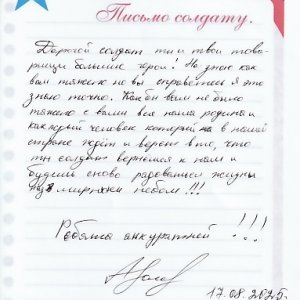 Письмо солдату.
Дорогой солдат ты и твои това-
рищи большие герои! Не знаю как
вам тяжело но вы справитесь я это
знаю точно. Как бы вам не было
тяжело с вами вся наша родина и
каждый человек который в нашей
стране ждёт и верит в то, что
ты солдат вернешься к нам и
будешь снова радоваться жизни
под мирным небом!!!
Ребята аккуратней!!!
17.08.2025г.